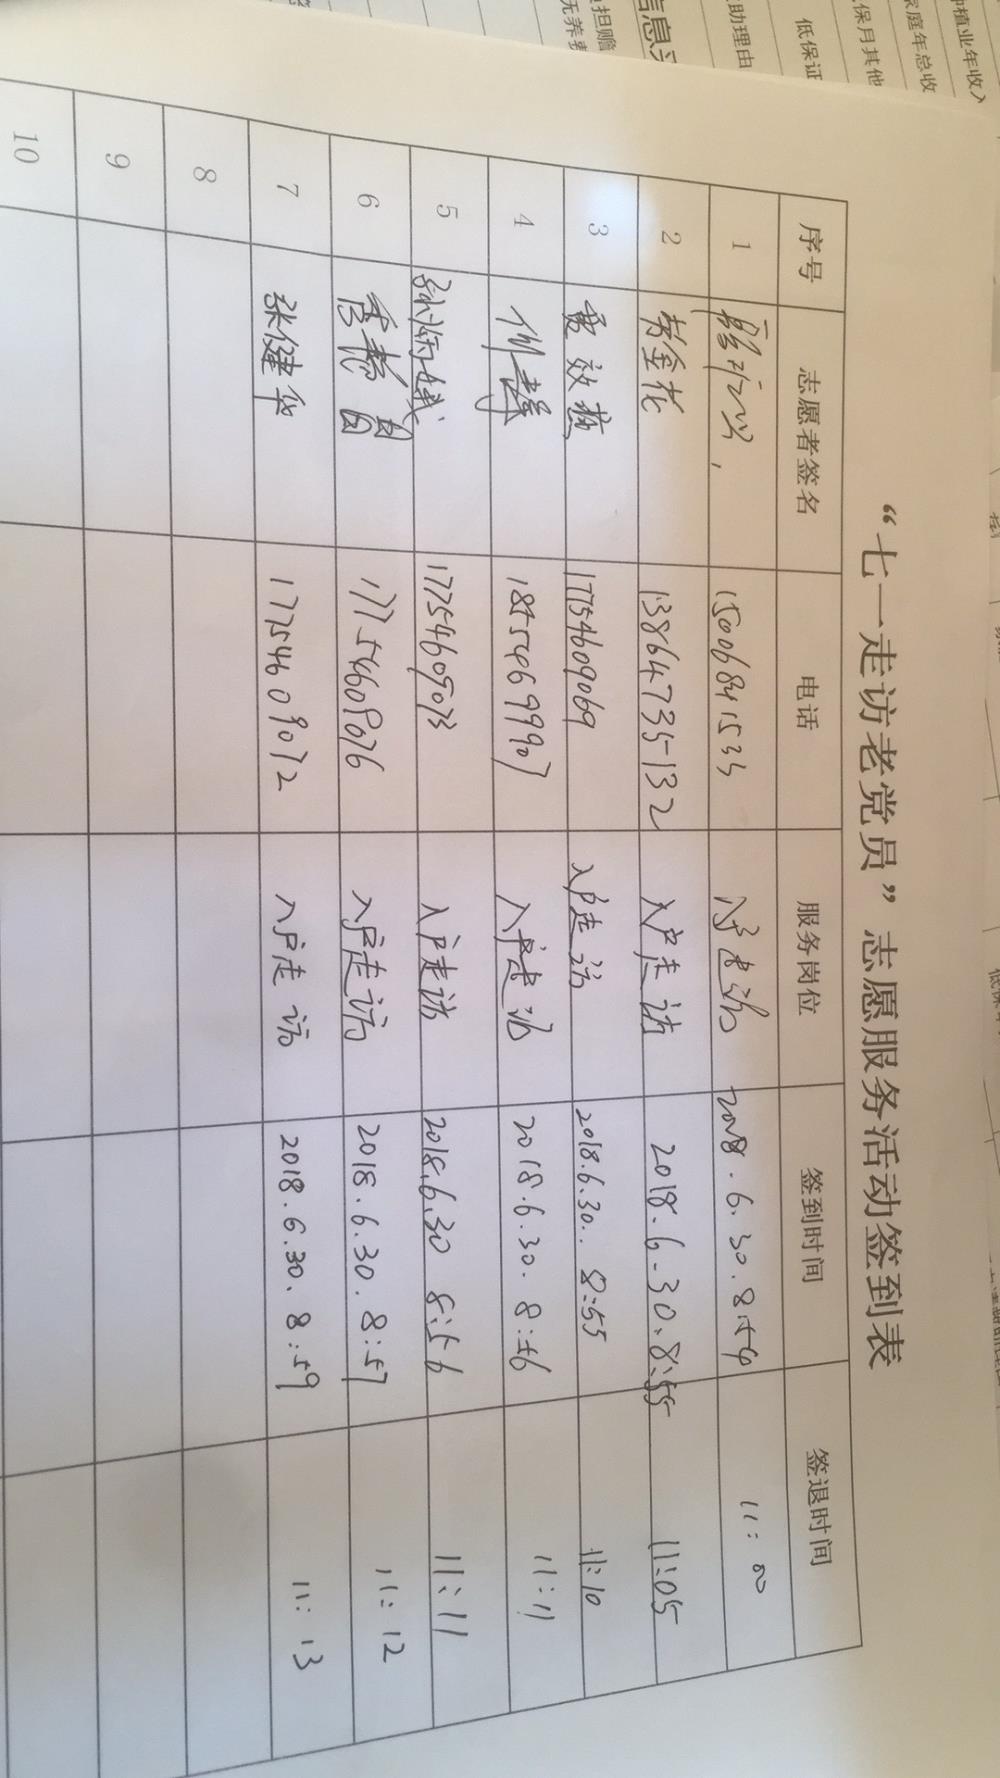 “七一走访老党员”志愿服务活动签到表
序号 志愿者签名 电话 服务岗位 签到时间 签退时间
1 15006841533 入户走访 2018.6.30.8:54 11:00
2 金花 13864735132 入户走访 2018.6.30.8:55 11:05
3 效 17754609069 入户走访 2018.6.30.. 8:55 11:10
4 18554699907 入户走访 2018.6.30.8:56 11:11
5 孙 17754609073 入户走访 2018.6.30 8:56 11:11
6 17754609076 入户走访 2018.6.30.8:57 11:12
7 张健华 17754609072 入户走访 2018.6.30.8:59 11:13
8
9
10
种植业年收入
家庭年总收
保月其他
低保证
助理由
信息
担赡